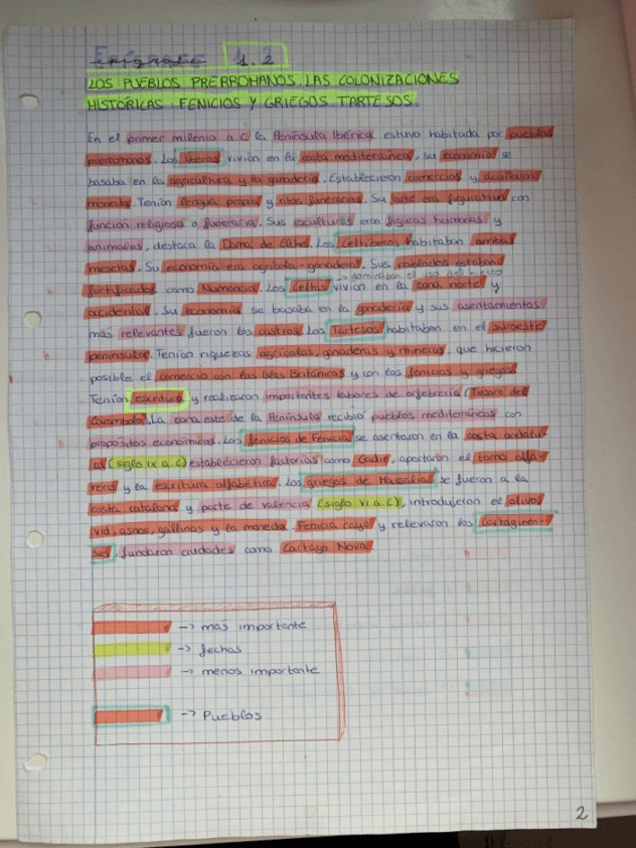 Epígrafe 1.2
LOS PUEBLOS PRERROMANOS. LAS COLONIZACIONES
HISTÓRICAS. FENICIOS Y GRIEGOS TARTESOS.
En el primer milenio a.C la Península Ibérica estuvo habitada por pueblos
prerromanos. Los íberos vivían en la costa mediterránea, su economía se
basaba en la agricultura y la ganadería. Establecieron comercios y acuñaban
moneda. Tenían lengua propia y ritos funerarios. Su arte era figurativo con
función religiosa o funeraria. Sus esculturas eran figuras humanas y
animales, destaca la Dama de Elche. Los Celtíberos habitaban ambas
mesetas. Su economía era agrícola-ganadera. Sus poblados estaban
-> dominaban el uso del hierro
fortificados como Numancia. Los Celtas vivían en la zona norte y
occidental. Su economía se basaba en la ganadería y sus asentamientos
más relevantes fueron los castros. Los Tartesos habitaban en el suroeste
peninsular. Tenían riquezas agrícolas, ganaderas y mineras, que hicieron
posible el comercio con las Islas Británicas y con los fenicios y griegos
Tenían escritura y realizaron importantes labores de orfebrería (Tesoro del
Carambolo. La zona este de la Península recibió pueblos mediterráneos con
propósitos económicos. Los fenicios de Fenicia se asentaron en la costa andalu-
za (siglo IX a.C) establecieron factorías como Gadir, aportaron el torno alfa-
rero y la escritura alfabética. Los griegos de Massalia se fueron a la
costa catalana y parte de valencia (siglo VI a.C), introdujeron el olivo
vid, asnos, gallinas y la moneda. Fenicia cayó y relevaron los Cartaginen-
sus fundaron ciudades como Cartago Nova.
-> mas importante
-> fechas
-> menos importante
-> Pueblos
2